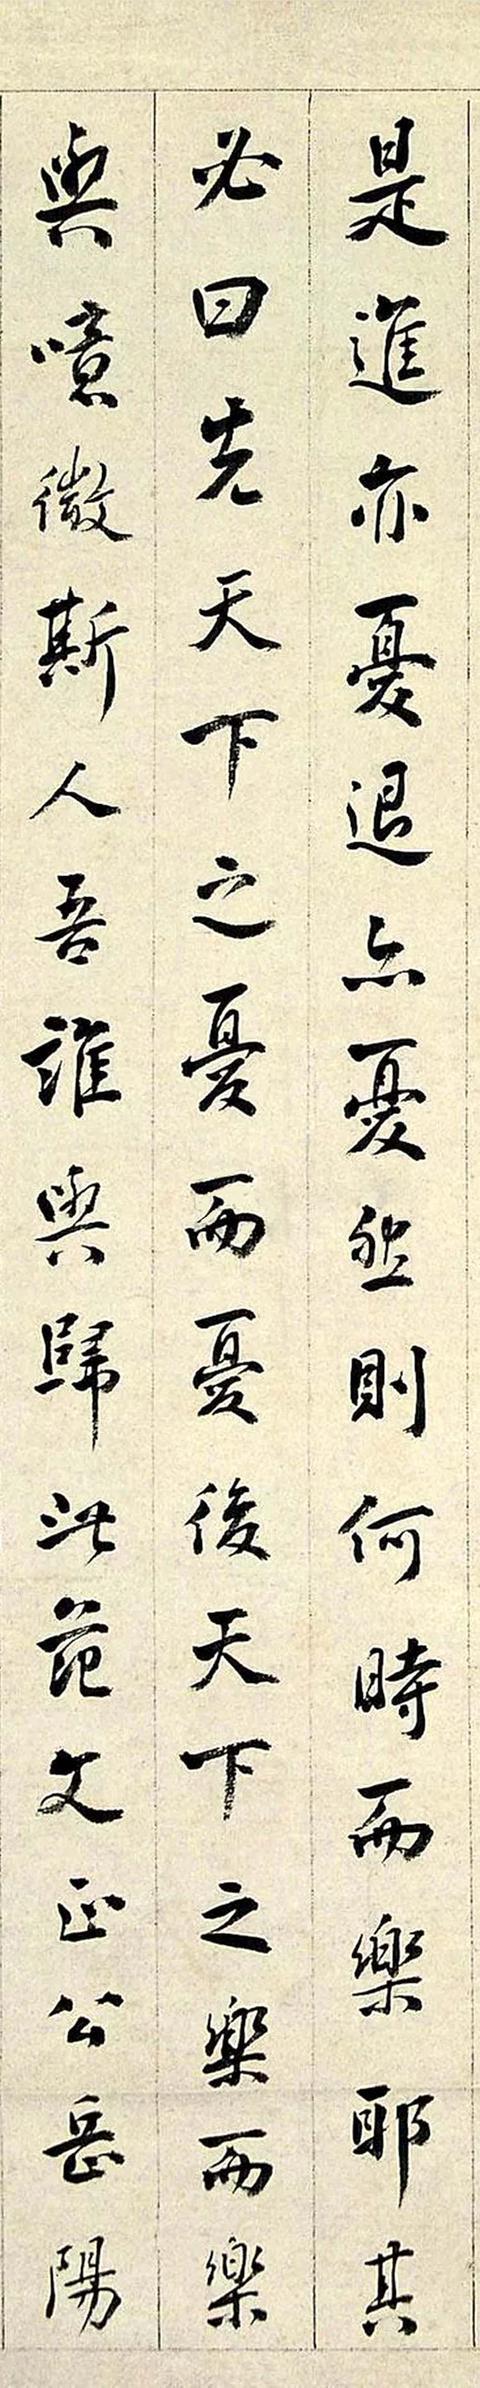 是進亦憂退亦憂然則何時而樂耶其
必曰先天下之憂而憂後天下之樂而樂
與噫微斯人吾誰與歸此范文正公岳陽